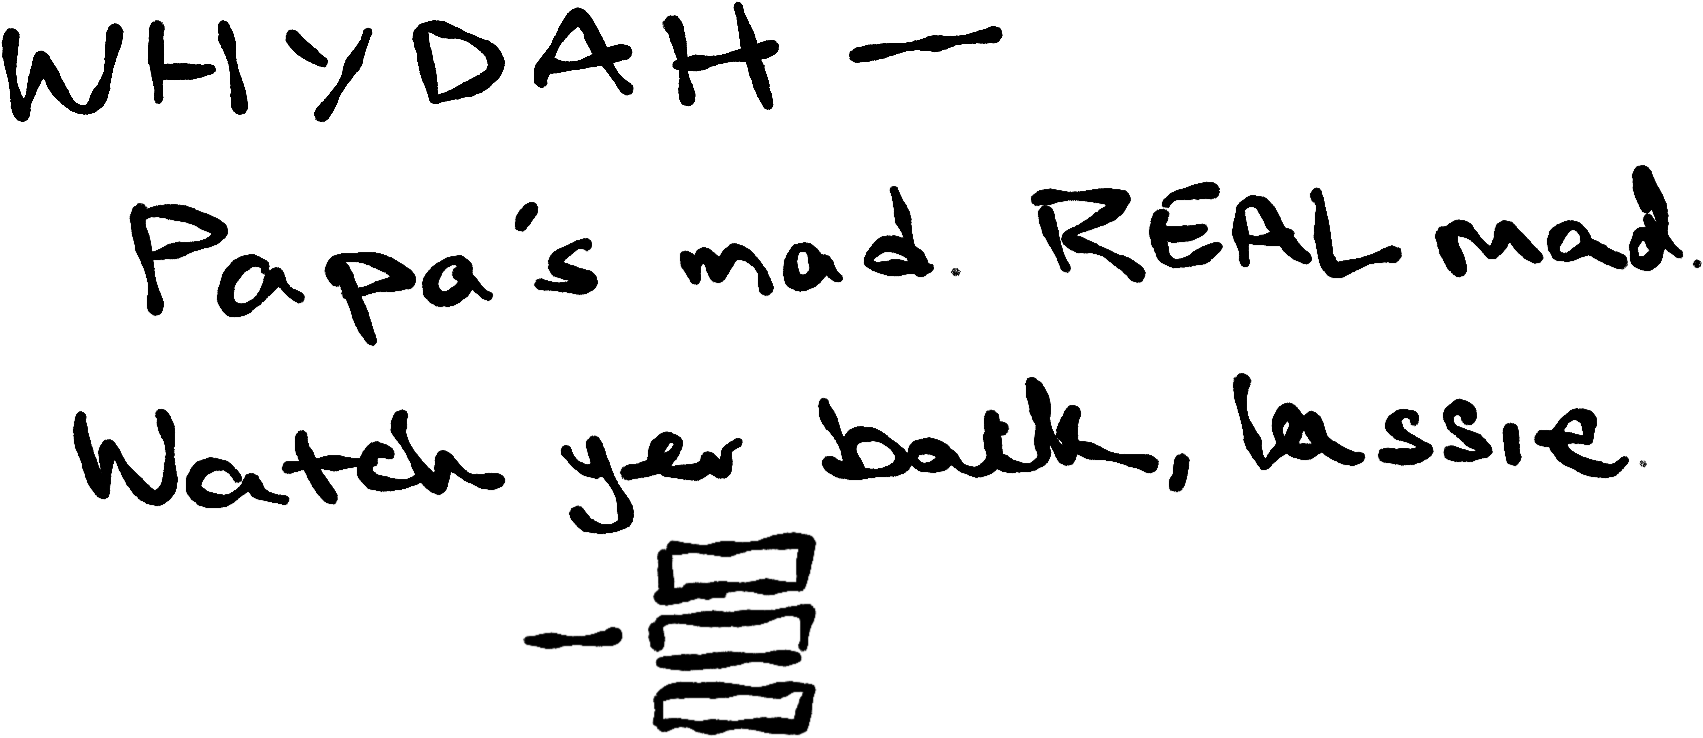 WHYDAH —
Papa's mad. REAL mad.
Watch yer back, lassie.
—